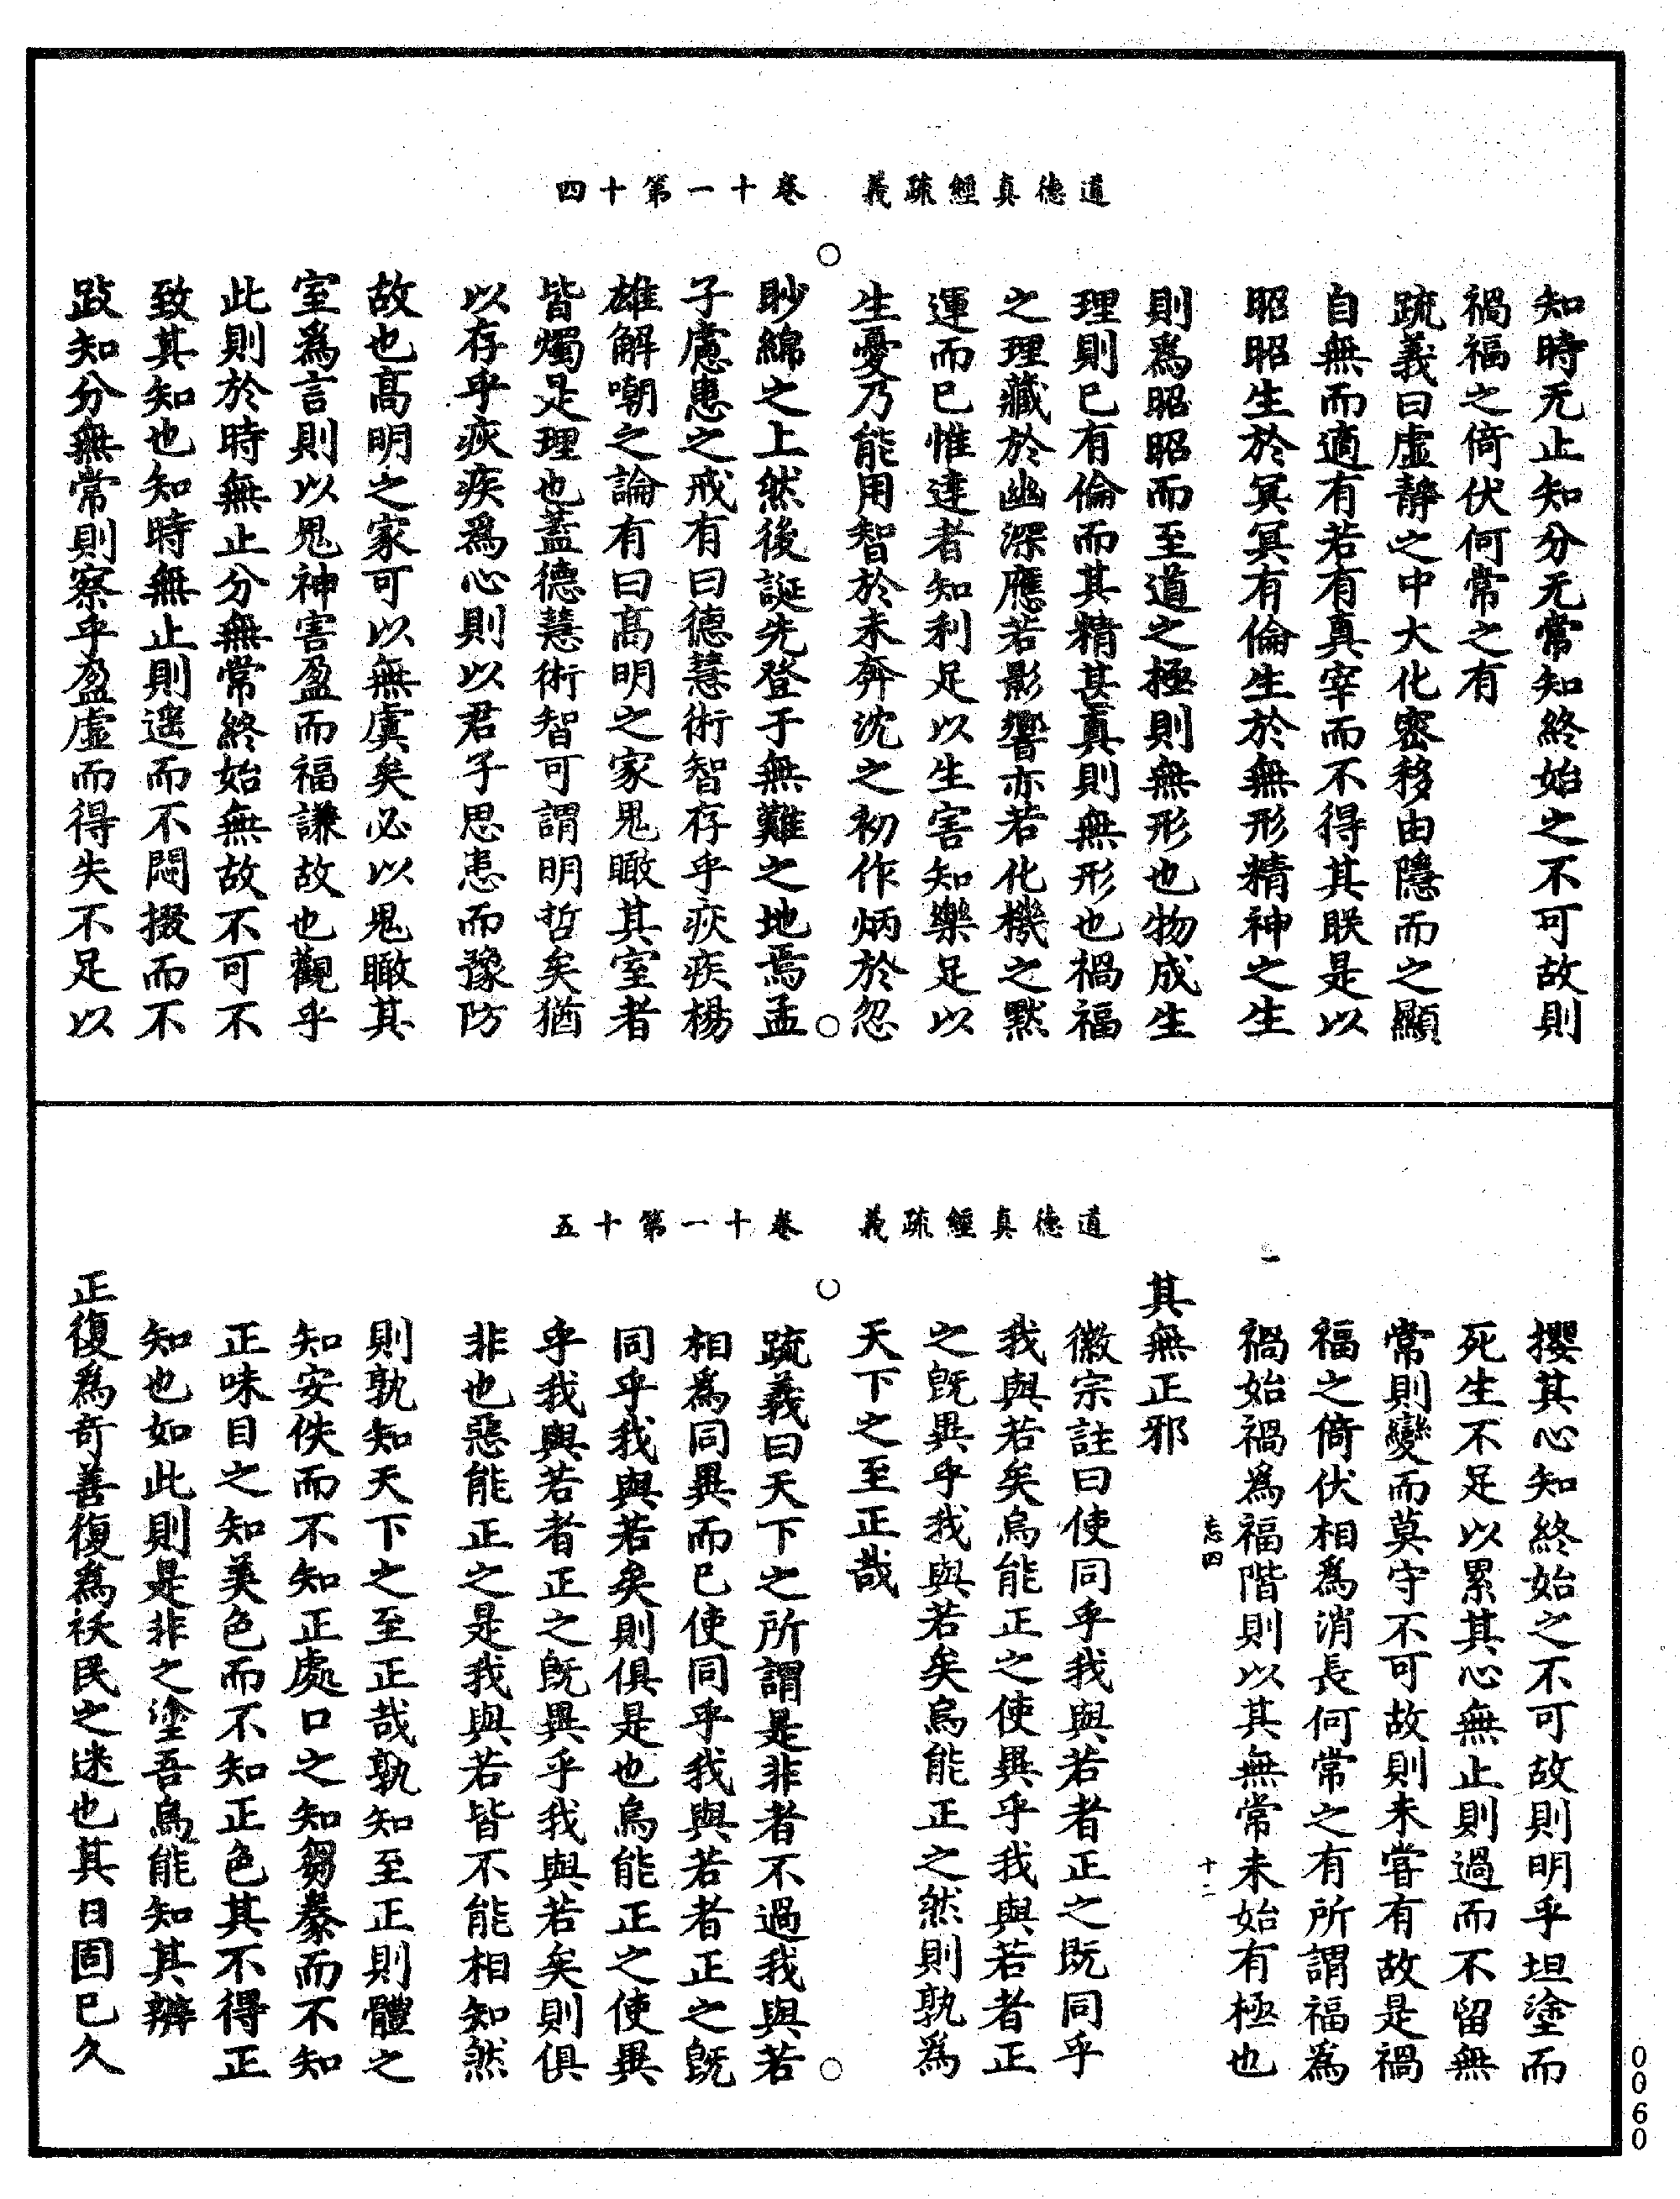 道德真經疏義　卷十一第十四
知時无止知分无常知終始之不可故則
禍福之倚伏何常之有
疏義曰虛靜之中大化密移由隱而之顯
自無而適有若有真宰而不得其眹是以
昭昭生於冥冥有倫生於無形精神之生
則爲昭昭而至道之極則無形也物成生
理則已有倫而其精甚真則無形也禍福
之理藏於幽深應若影響亦若化機之默
運而已惟達者知利足以生害知樂足以
生憂乃能用智於未奔沈之初作炳於忽
眇綿之上然後誕先登于無難之地焉孟
子慮患之戒有曰德慧術智存乎疢疾楊
雄解嘲之論有曰高明之家鬼瞰其室者
皆燭是理也蓋德慧術智可謂明哲矣猶
以存乎疢疾爲心則以君子思患而豫防
故也高明之家可以無虞矣必以鬼瞰其
室爲言則以鬼神害盈而福謙故也觀乎
此則於時無止分無常終始無故不可不
致其知也知時無止則遥而不悶掇而不
跂知分無常則察乎盈虛而得失不足以
道德真經疏義　卷十一第十五
攖其心知終始之不可故則明乎坦塗而
死生不足以累其心無止則過而不留無
常則變而莫守不可故則未嘗有故是禍
福之倚伏相爲消長何常之有所謂福爲
禍始禍爲福階則以其無常未始有極也
一
忘四　十二
其無正邪
徽宗註曰使同乎我與若者正之既同乎
我與若矣烏能正之使異乎我與若者正
之既異乎我與若矣烏能正之然則孰爲
天下之至正哉
疏義曰天下之所謂是非者不過我與若
相爲同異而已使同乎我與若者正之既
同乎我與若矣則俱是也烏能正之使異
乎我與若者正之既異乎我與若矣則俱
非也惡能正之是我與若皆不能相知然
則孰知天下之至正哉孰知至正則體之
知安佚而不知正處口之知芻豢而不知
正味目之知美色而不知正色其不得正
知也如此則是非之塗吾烏能知其辨
正復爲奇善復爲袄民之迷也其日固已久
0060